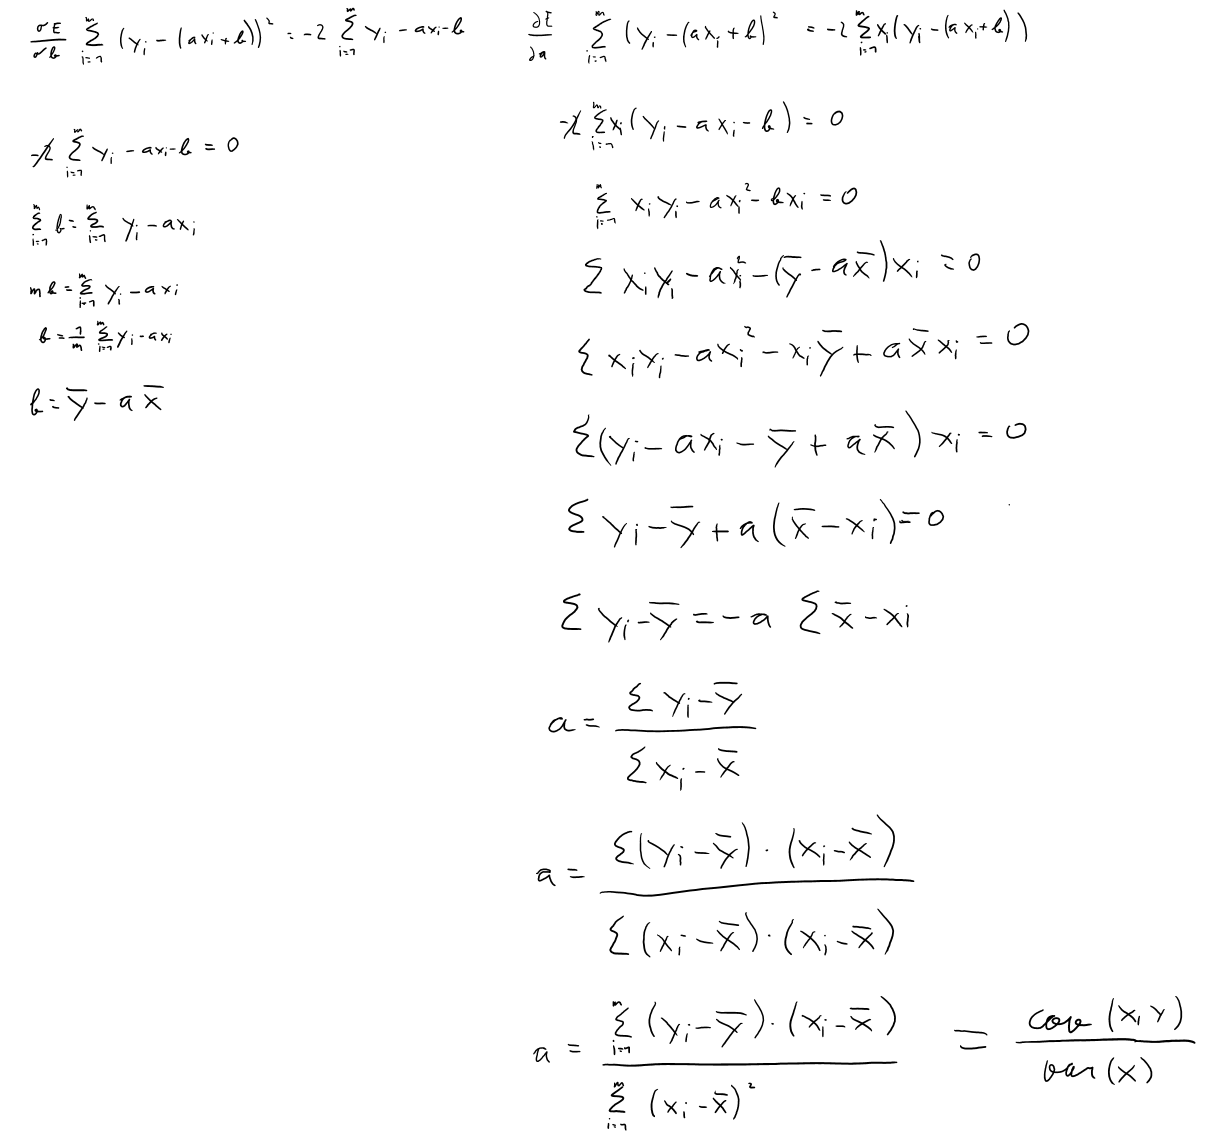 σE/σb Σ_{i=1}^{m} (y_i - (ax_i + b))² = -2 Σ_{i=1}^{m} y_i - ax_i - b
-2 Σ_{i=1}^{m} y_i - ax_i - b = 0
Σ_{i=1}^{m} b = Σ_{i=1}^{m} y_i - ax_i
m b = Σ_{i=1}^{m} y_i - ax_i
b = 1/m Σ_{i=1}^{m} y_i - ax_i
b = y̅ - a x̅
∂E/∂a Σ_{i=1}^{m} (y_i - (ax_i + b)² = -2 Σ_{i=1}^{m} x_i (y_i - (ax_i + b))
-2 Σ_{i=1}^{m} x_i (y_i - ax_i - b) = 0
Σ_{i=1}^{m} x_i y_i - ax_i² - bx_i = 0
Σ x_i y_i - ax_i² - (y̅ - a x̅) x_i = 0
Σ x_i y_i - ax_i² - x_i y̅ + a x̅ x_i = 0
Σ (y_i - ax_i - y̅ + a x̅) x_i = 0
Σ y_i - y̅ + a (x̅ - x_i) = 0
Σ y_i - y̅ = -a Σ x̅ - x_i
a = Σ y_i - y̅ / Σ x_i - x̅
a = Σ (y_i - y̅) · (x_i - x̅) / Σ (x_i - x̅) · (x_i - x̅)
a = Σ_{i=1}^{m} (y_i - y̅) · (x_i - x̅) / Σ_{i=1}^{m} (x_i - x̅)² = cov (x, y) / var (x)